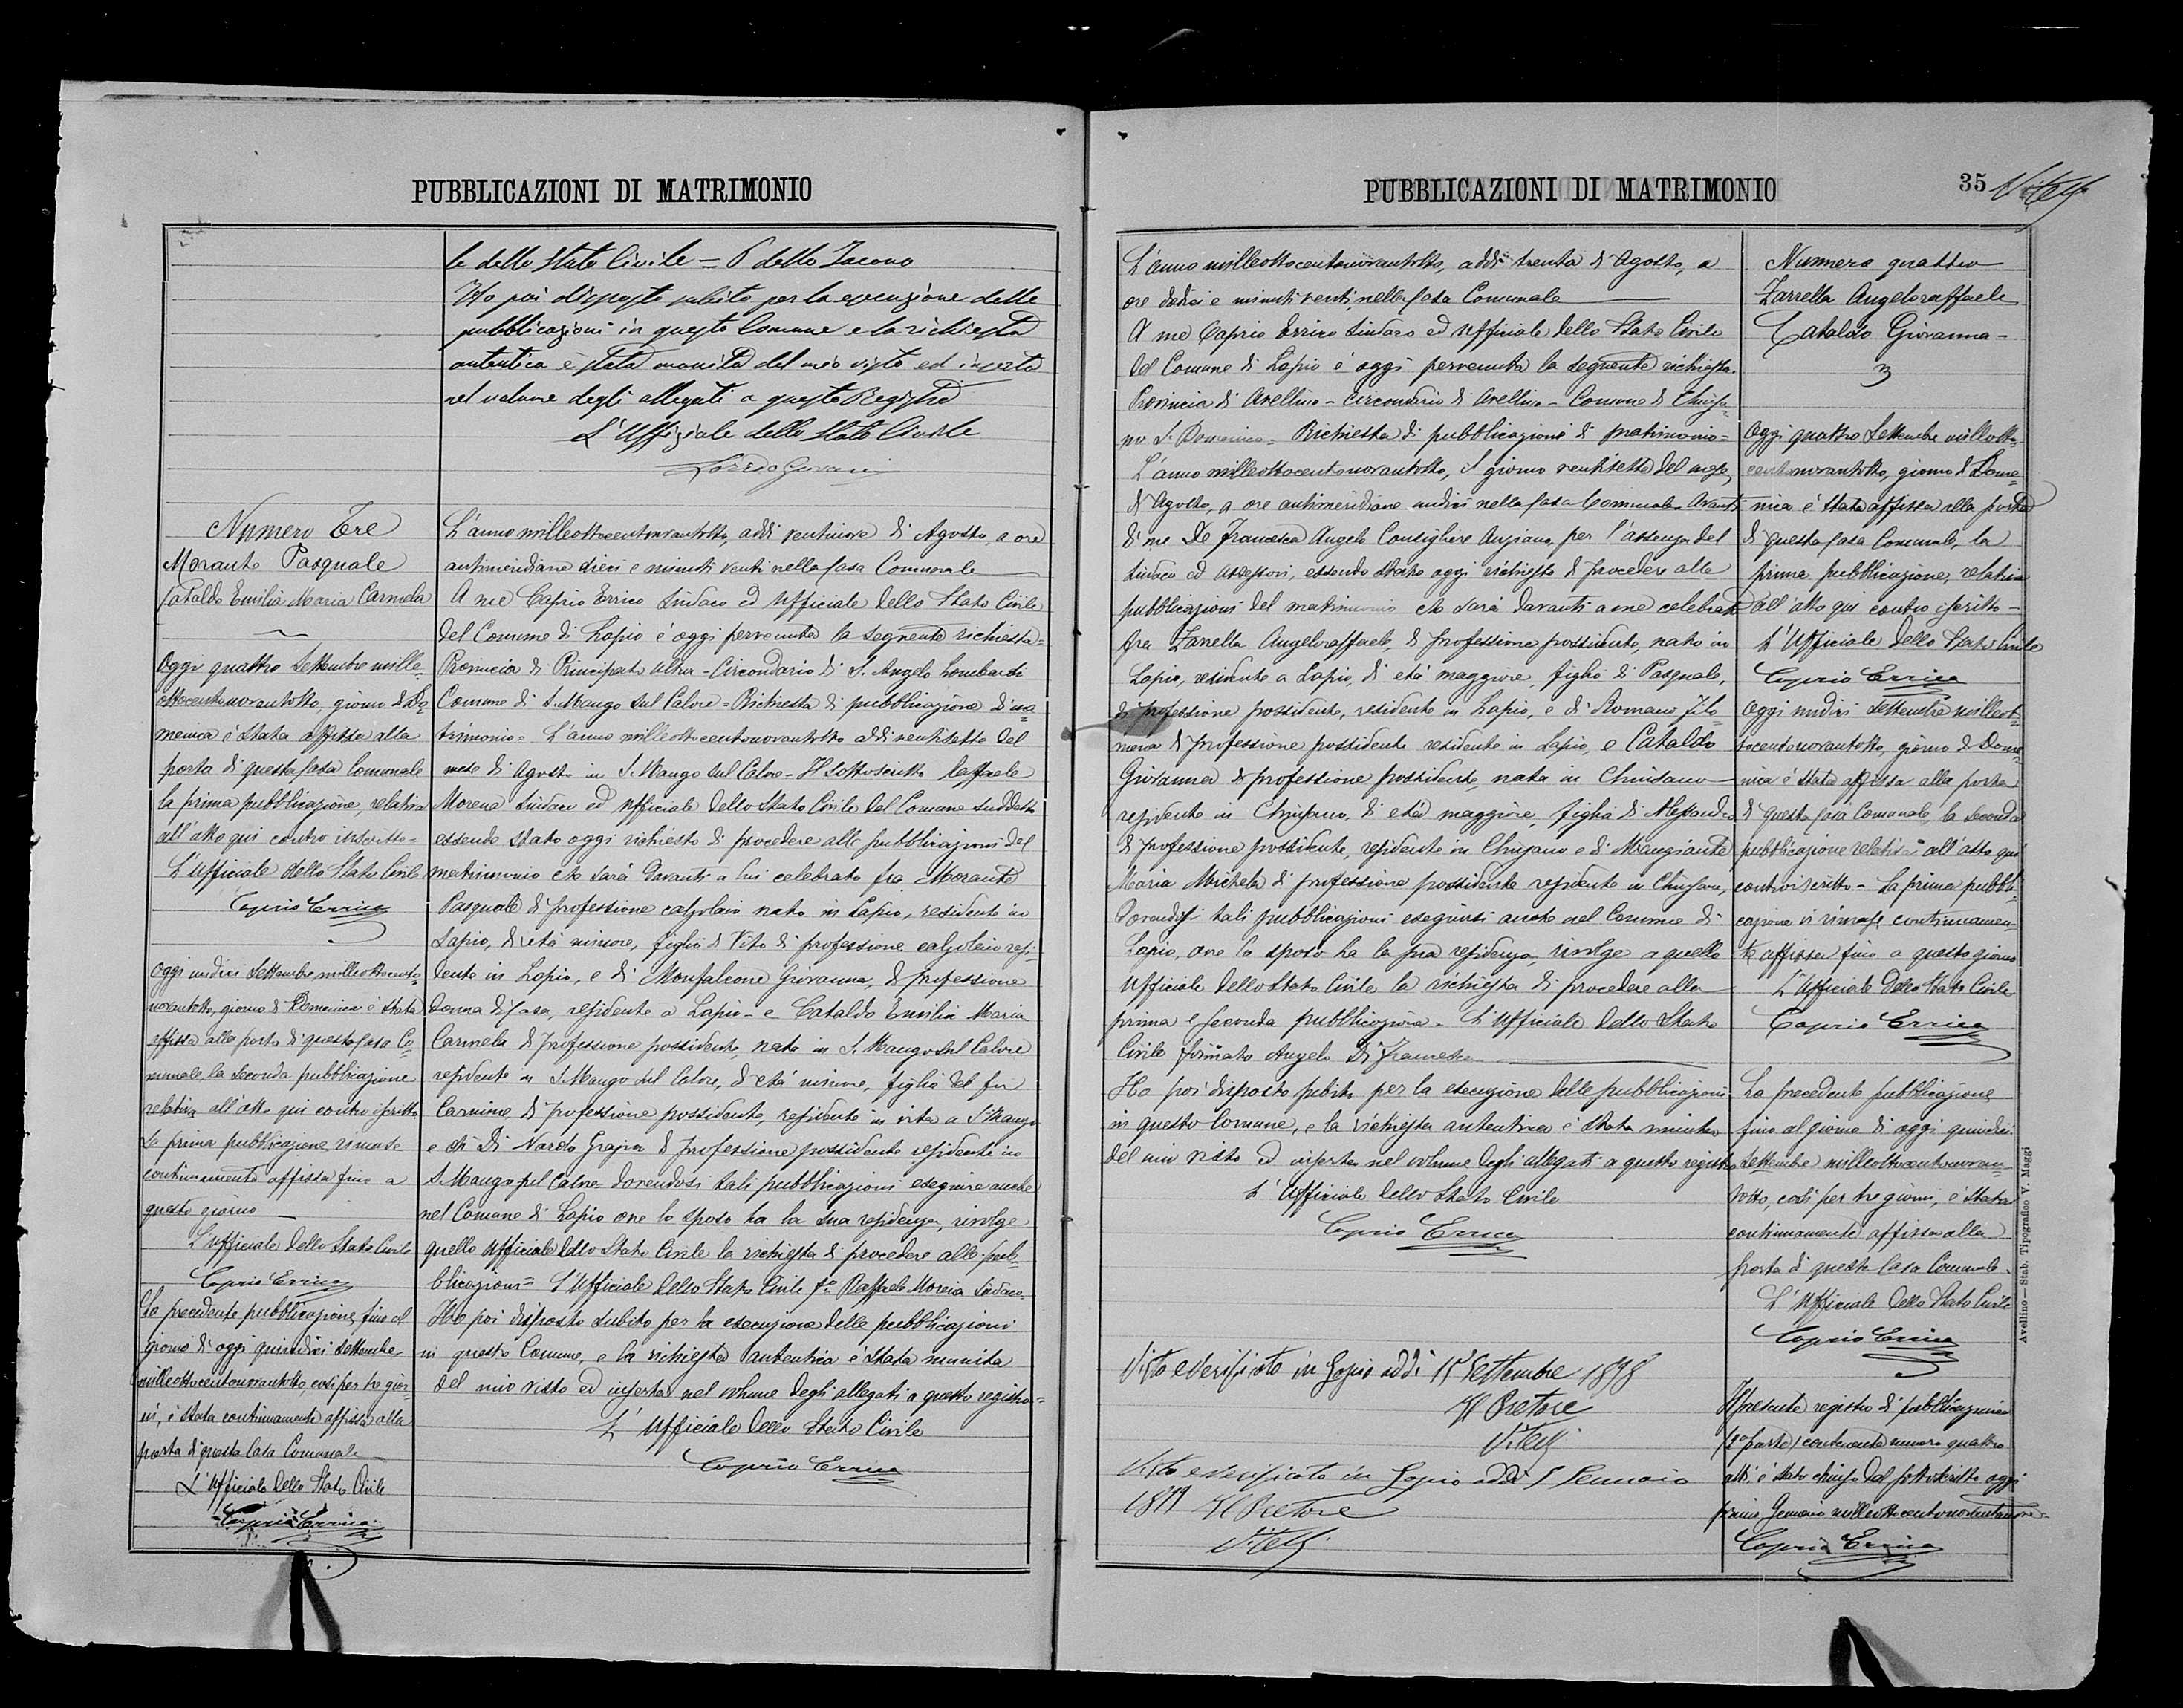 PUBBLICAZIONI DI MATRIMONIO
le dello Stato Civile =
Ho poi disposto subito per la esecuzione delle
pubblicazioni in questo Comune e la richiesta
autentica è stata munita del mio visto ed inserta
nel volume degli allegati a questo Registro
L'Uffiziale dello Stato Civile
Numero Tre
Morante Pasquale
Cataldo Emilia Maria Carmela
Oggi quattro Settembre mille=
ottocentonovantotto, giorno di Do=
menica è stata affissa alla
porta di questa Casa Comunale
la prima pubblicazione, relativa
all'atto qui contro inscritto =
L'Ufficiale dello Stato Civile
Caprio Errico
Oggi undici Settembre milleottocento=
novantotto, giorno di Domenica è stata
affissa alla porta di questa Casa Co=
munale, la seconda pubblicazione
relativa all'atto qui contro iscritto
La prima pubblicazione rimase
continuamente affissa fino a
questo giorno
L'Ufficiale dello Stato Civile
Caprio Errico
La precedente pubblicazione, fino al
giorno di oggi quindici Settembre,
milleottocentonovantotto, così per tre gior=
ni, è stata continuamente affissa alla
porta di questa Casa Comunale
L'Ufficiale dello Stato Civile
Caprio Errico
L'anno milleottocentonovantotto, addì ventinove di Agosto, a ore
antimeridiane dieci e minuti venti nella Casa Comunale
A me Caprio Errico Sindaco ed Ufficiale dello Stato Civile
del Comune di Lapio è oggi pervenuta la seguente richiesta=
Provincia di Principato Ultra - Circondario di S. Angelo Lombardi
Comune di S. Mango sul Calore = Richiesta di pubblicazione di ma=
trimonio = L'anno milleottocentonovantotto addì ventisette del
mese di Agosto in S. Mango sul Calore = Il sottoscritto Raffaele
Morena Sindaco ed Ufficiale dello Stato Civile del Comune suddetto
essendo stato oggi richiesto di procedere alle pubblicazioni del
matrimonio che sarà davanti a lui celebrato fra Morante
Pasquale di professione calzolaio nato in Lapio, residente in
Lapio, di età minore, figlio di Vito di professione calzolaio resi=
dente in Lapio, e di Monfalcone Giovanna, di professione
donna di casa, residente a Lapio - e Cataldo Emilia Maria
Carmela di professione possidente, nata in S. Mango sul Calore
residente in S. Mango sul Calore, di età minore, figlia del fu
Carmine di professione possidente, residente in vita a S. Mango
e di Di Nardo Grazia di professione possidente residente in
S. Mango sul Calore = dovendosi tali pubblicazioni eseguire anche
nel Comune di Lapio ove lo sposo ha la sua residenza, rivolge
quello Ufficiale dello Stato Civile la richiesta di procedere alle pub=
blicazioni = L'Ufficiale dello Stato Civile f.to Raffaele Morena Sindaco
Ho poi disposto subito per la esecuzione delle pubblicazioni
in questo Comune, e la richiesta autentica è stata munita
del mio visto ed inserta nel volume degli allegati a questo registro =
L'Ufficiale dello Stato Civile
Caprio Errico
PUBBLICAZIONI DI MATRIMONIO
35
Vitelli
L'anno milleottocentonovantotto, addì trenta di Agosto, a
ore dodici e minuti venti, nella Casa Comunale
A me Caprio Errico Sindaco ed Ufficiale dello Stato Civile
del Comune di Lapio è oggi pervenuta la seguente richiesta.
Provincia di Avellino - Circondario di Avellino - Comune di Chiusa=
no S. Domenico = Richiesta di pubblicazione di matrimonio =
L'anno milleottocentonovantotto, il giorno ventisette del mese,
di Agosto, a ore antimeridiane undici nella Casa Comunale. Avanti
di me De Francesca Angelo Consigliere Anziano, per l'assenza del
Sindaco ed Assessori, essendo stato oggi richiesto di procedere alle
pubblicazioni del matrimonio che sarà davanti a me celebrato
fra Zarrella Angeloraffaele, di professione possidente, nato in
Lapio, residente a Lapio, di età maggiore, figlio di Pasquale,
di professione possidente, residente in Lapio, e di Romano Filo=
mena di professione possidente residente in Lapio, e Cataldo
Giovanna di professione possidente, nata in Chiusano
residente in Chiusano, di età maggiore, figlia di Alessandro
di professione possidente, residente in Chiusano e di Mangiante
Maria Michela di professione possidente residente in Chiusano,
Dovendosi tali pubblicazioni eseguirsi anche nel Comune di
Lapio, ove lo sposo ha la sua residenza, rivolge a quello
Ufficiale dello Stato Civile la richiesta di procedere alla
prima e seconda pubblicazione. L'Ufficiale dello Stato
Civile firmato Angelo Di Francesca
Ho poi disposto subito per la esecuzione delle pubblicazioni
in questo Comune, e la richiesta autentica è stata munita
del mio visto ed inserta nel volume degli allegati a questo registro
L'Ufficiale dello Stato Civile
Caprio Errico
Visto e verificato in Lapio addì 15 Settembre 1898
Il Pretore
Vitelli
Visto e verificato in Lapio addì 5 Gennaio
1899 Il Pretore
Vitelli
Numero quattro
Zarrella Angeloraffaele
Cataldo Giovanna -
Oggi quattro Settembre milleotto=
centonovantotto, giorno di Dome=
nica è stata affissa alla porta
di questa Casa Comunale, la
prima pubblicazione, relativa
all'atto qui contro iscritto -
L'Ufficiale dello Stato Civile
Caprio Errico
Oggi undici Settembre milleot=
tocentonovantotto, giorno di Dome=
nica è stata affissa alla porta
di questa Casa Comunale, la seconda
pubblicazione relativa all'atto qui
contro iscritto - La prima pubbli=
cazione vi rimase continuamen=
te affissa fino a questo giorno
L'Ufficiale dello Stato Civile
Caprio Errico
La precedente pubblicazione,
fino al giorno di oggi quindici
Settembre milleottocentonovan=
totto, così per tre giorni, è stata
continuamente affissa alla
porta di questa Casa Comunale.
L'Ufficiale dello Stato Civile
Caprio Errico
Il presente registro di pubblicazioni
(2a parte) contenente numero quattro
atti è stato chiuso dal sottoscritto oggi
primo Gennaio milleottocentonovantanove.
Caprio Errico
Avellino — Stab. Tipografico V. Maggi